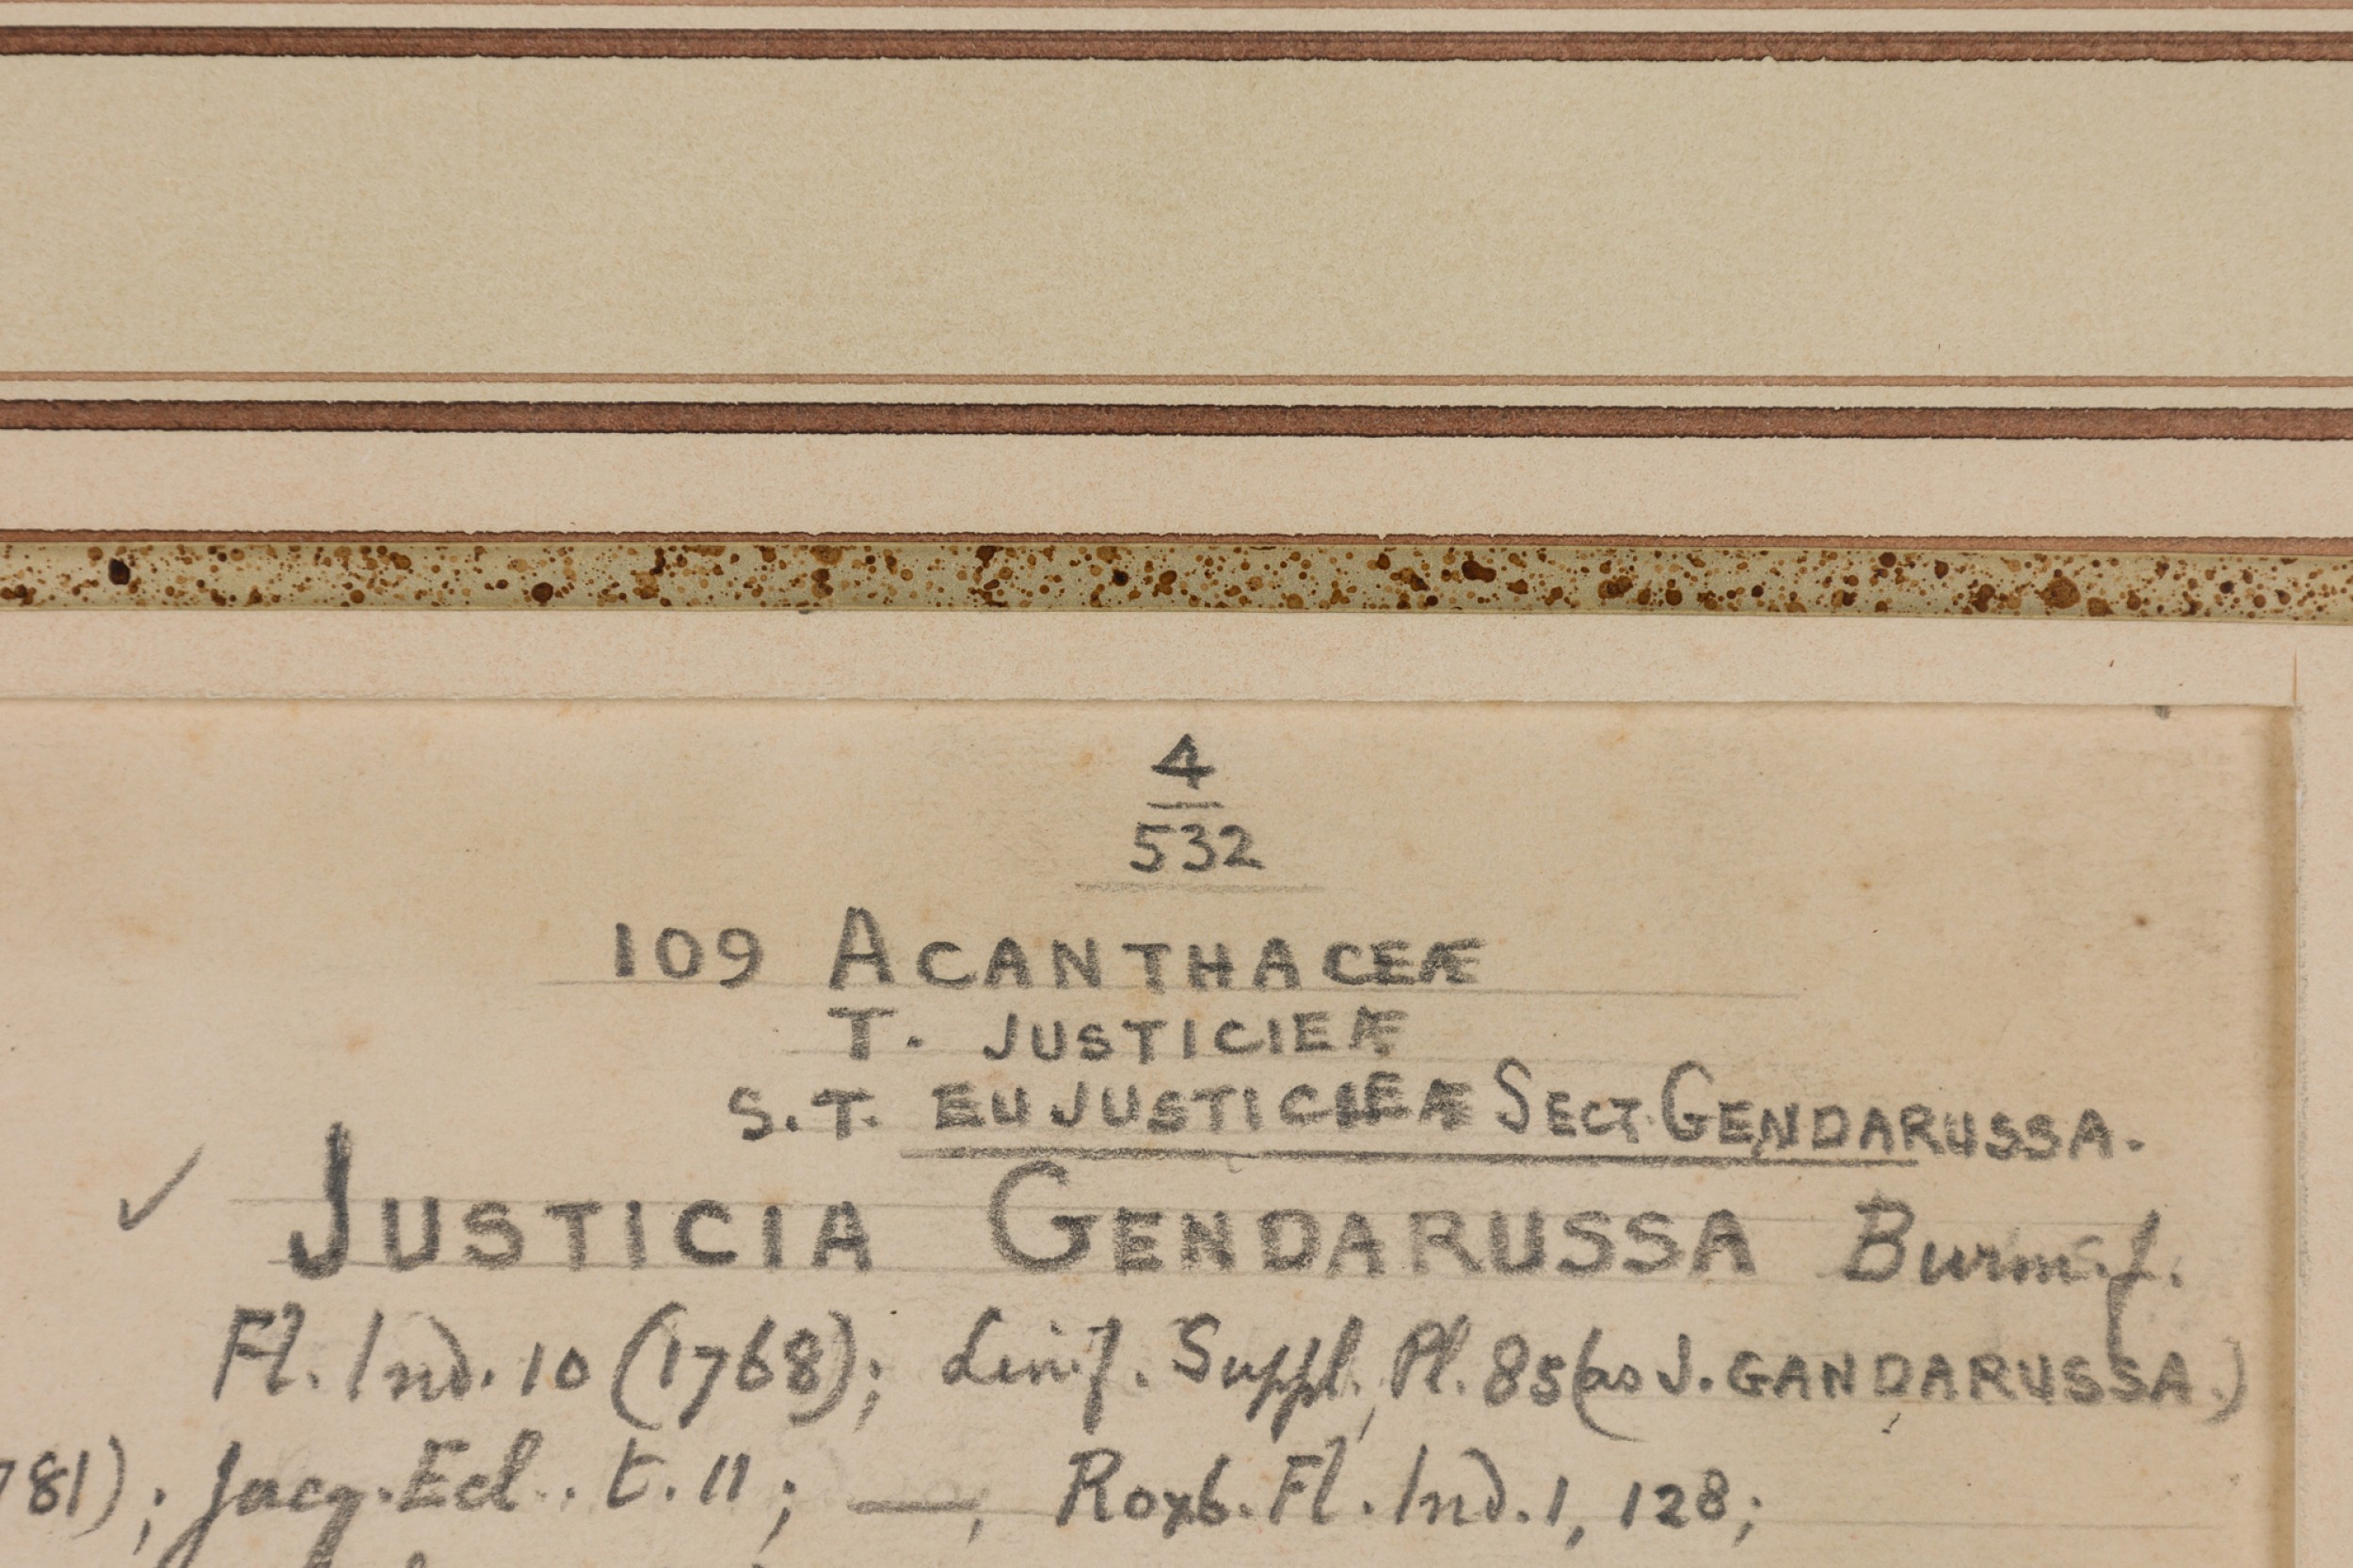 4
532
109 ACANTHACEÆ
T. JUSTICIEÆ
S.T. EUJUSTICIEÆ SECT. GENDARUSSA.
✓ JUSTICIA GENDARUSSA Burm. f.
Fl. Ind. 10 (1768); Lin. f. Suppl. Pl. 85 (as J. GANDARUSSA.)
781); Jacq. Ecl. t. 11; —, Roxb. Fl. Ind. 1, 128;